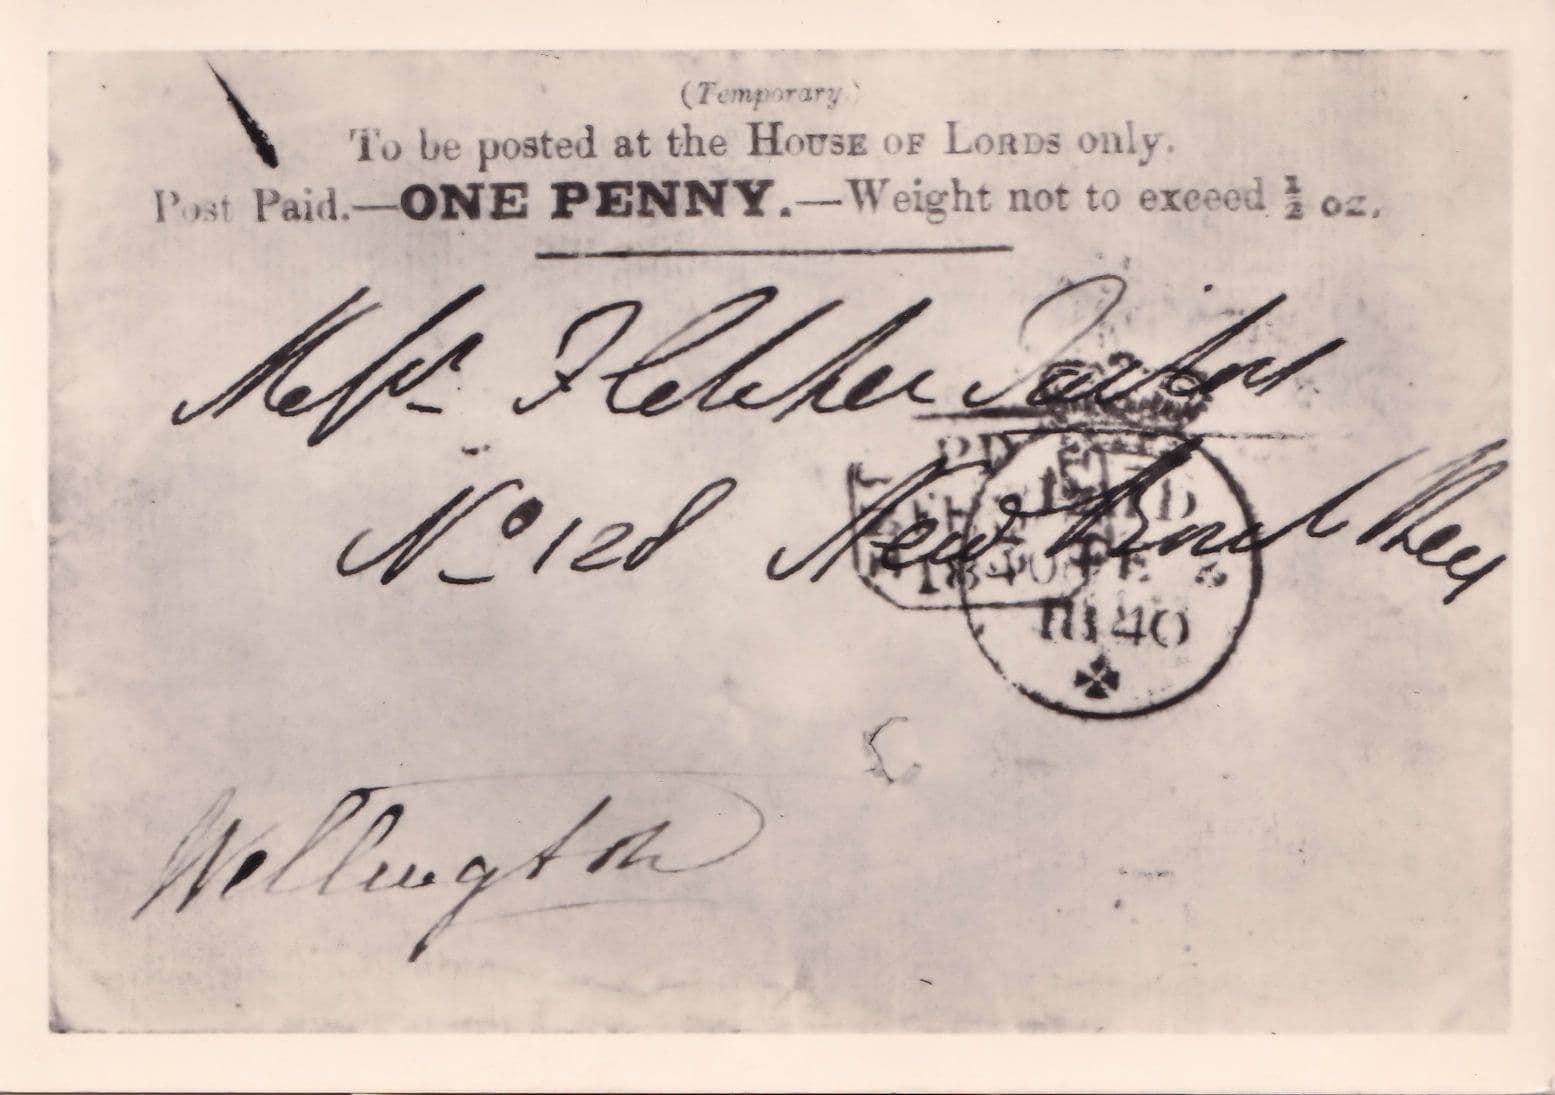 (Temporary.)
To be posted at the HOUSE OF LORDS only.
Post Paid.—ONE PENNY.—Weight not to exceed ½ oz.
Messrs. Fletcher
No 128 New
PAID
1840
Wellington